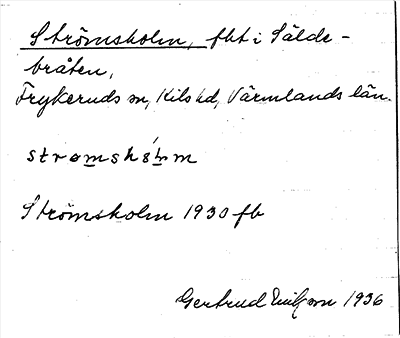 Strömsholm, fht i Sälde-
bråten,
Frykeruds sn, Kils hd, Värmlands län.
strømshólm
Strömsholm 1930 fb
Gertrud 1936